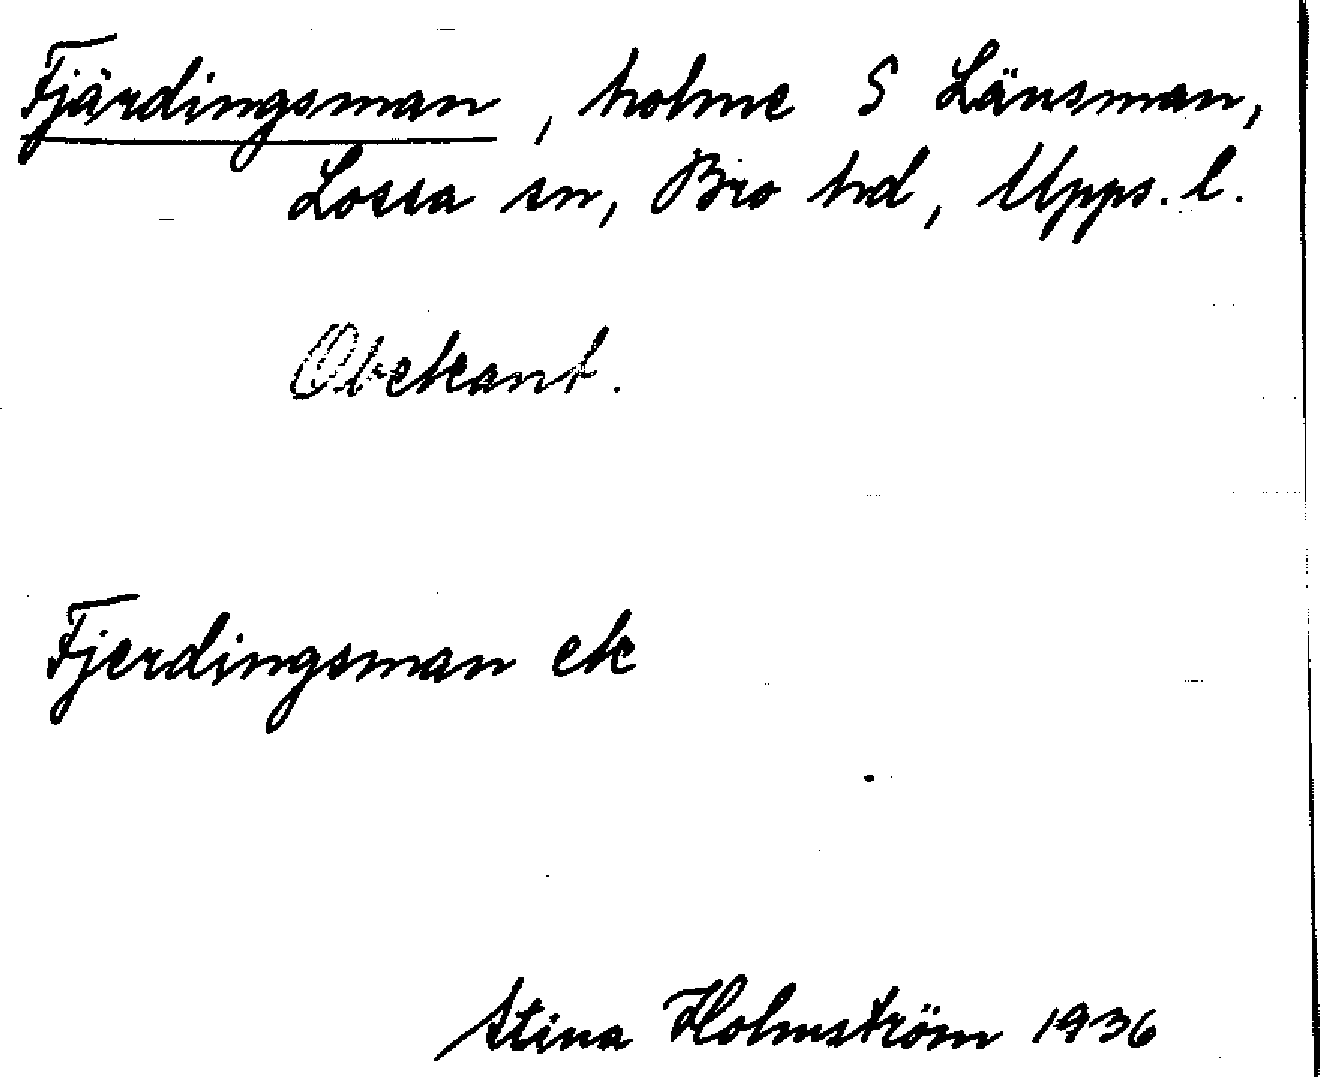 Fjärdingsman, holme S Länsman,
Lossa sn, Bro hd, Upps. l.
Obekant.
Fjerdingsman ek
Stina Holmström 1936